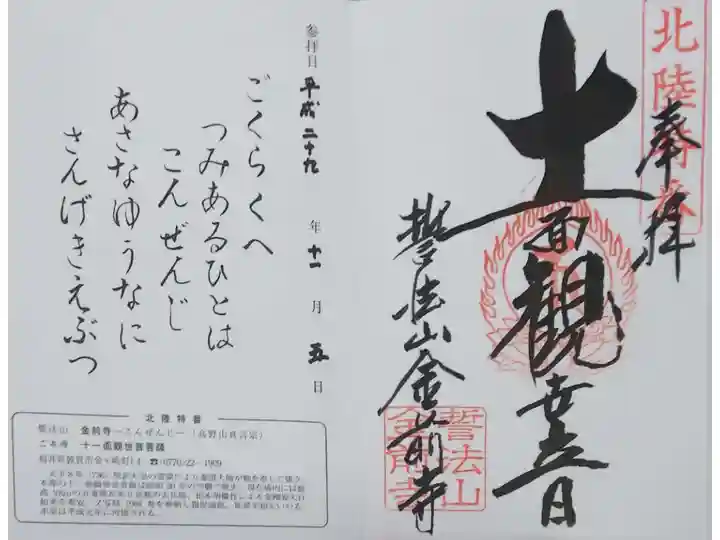 北陸特番
奉拝
十一面観世音
誓法山金前寺
誓法山
金前寺
参拝日 平成二十九年十一月五日
ごくらくへ
つみあるひとは
こんぜんじ
あさなゆうなに
さんげきえぶつ
北陸特番
誓法山 金前寺―こんぜんじ―(高野山真言宗)
ご本尊 十一面観世音菩薩
福井県敦賀市金ヶ崎町1-4 ☎(0770)22-1909